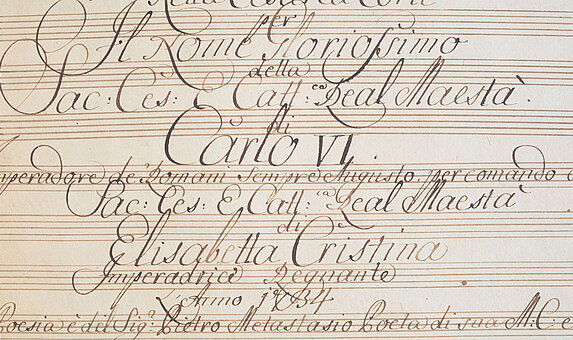 Nella Cesarea Corte
per
Il Nome Gloriosissimo
della
Sac: Ces: E Catt:ca Real Maestà
di
Carlo VI.
Imperadore de' Romani sempre Augusto, per comando d
Sac: Ces: E Catt:ca Real Maestà
di
Elisabetta Cristina
Imperadrice Regnante
L'Anno 1734
Poesia è del Sigr Pietro Metastasio Poeta di sua M: C: e